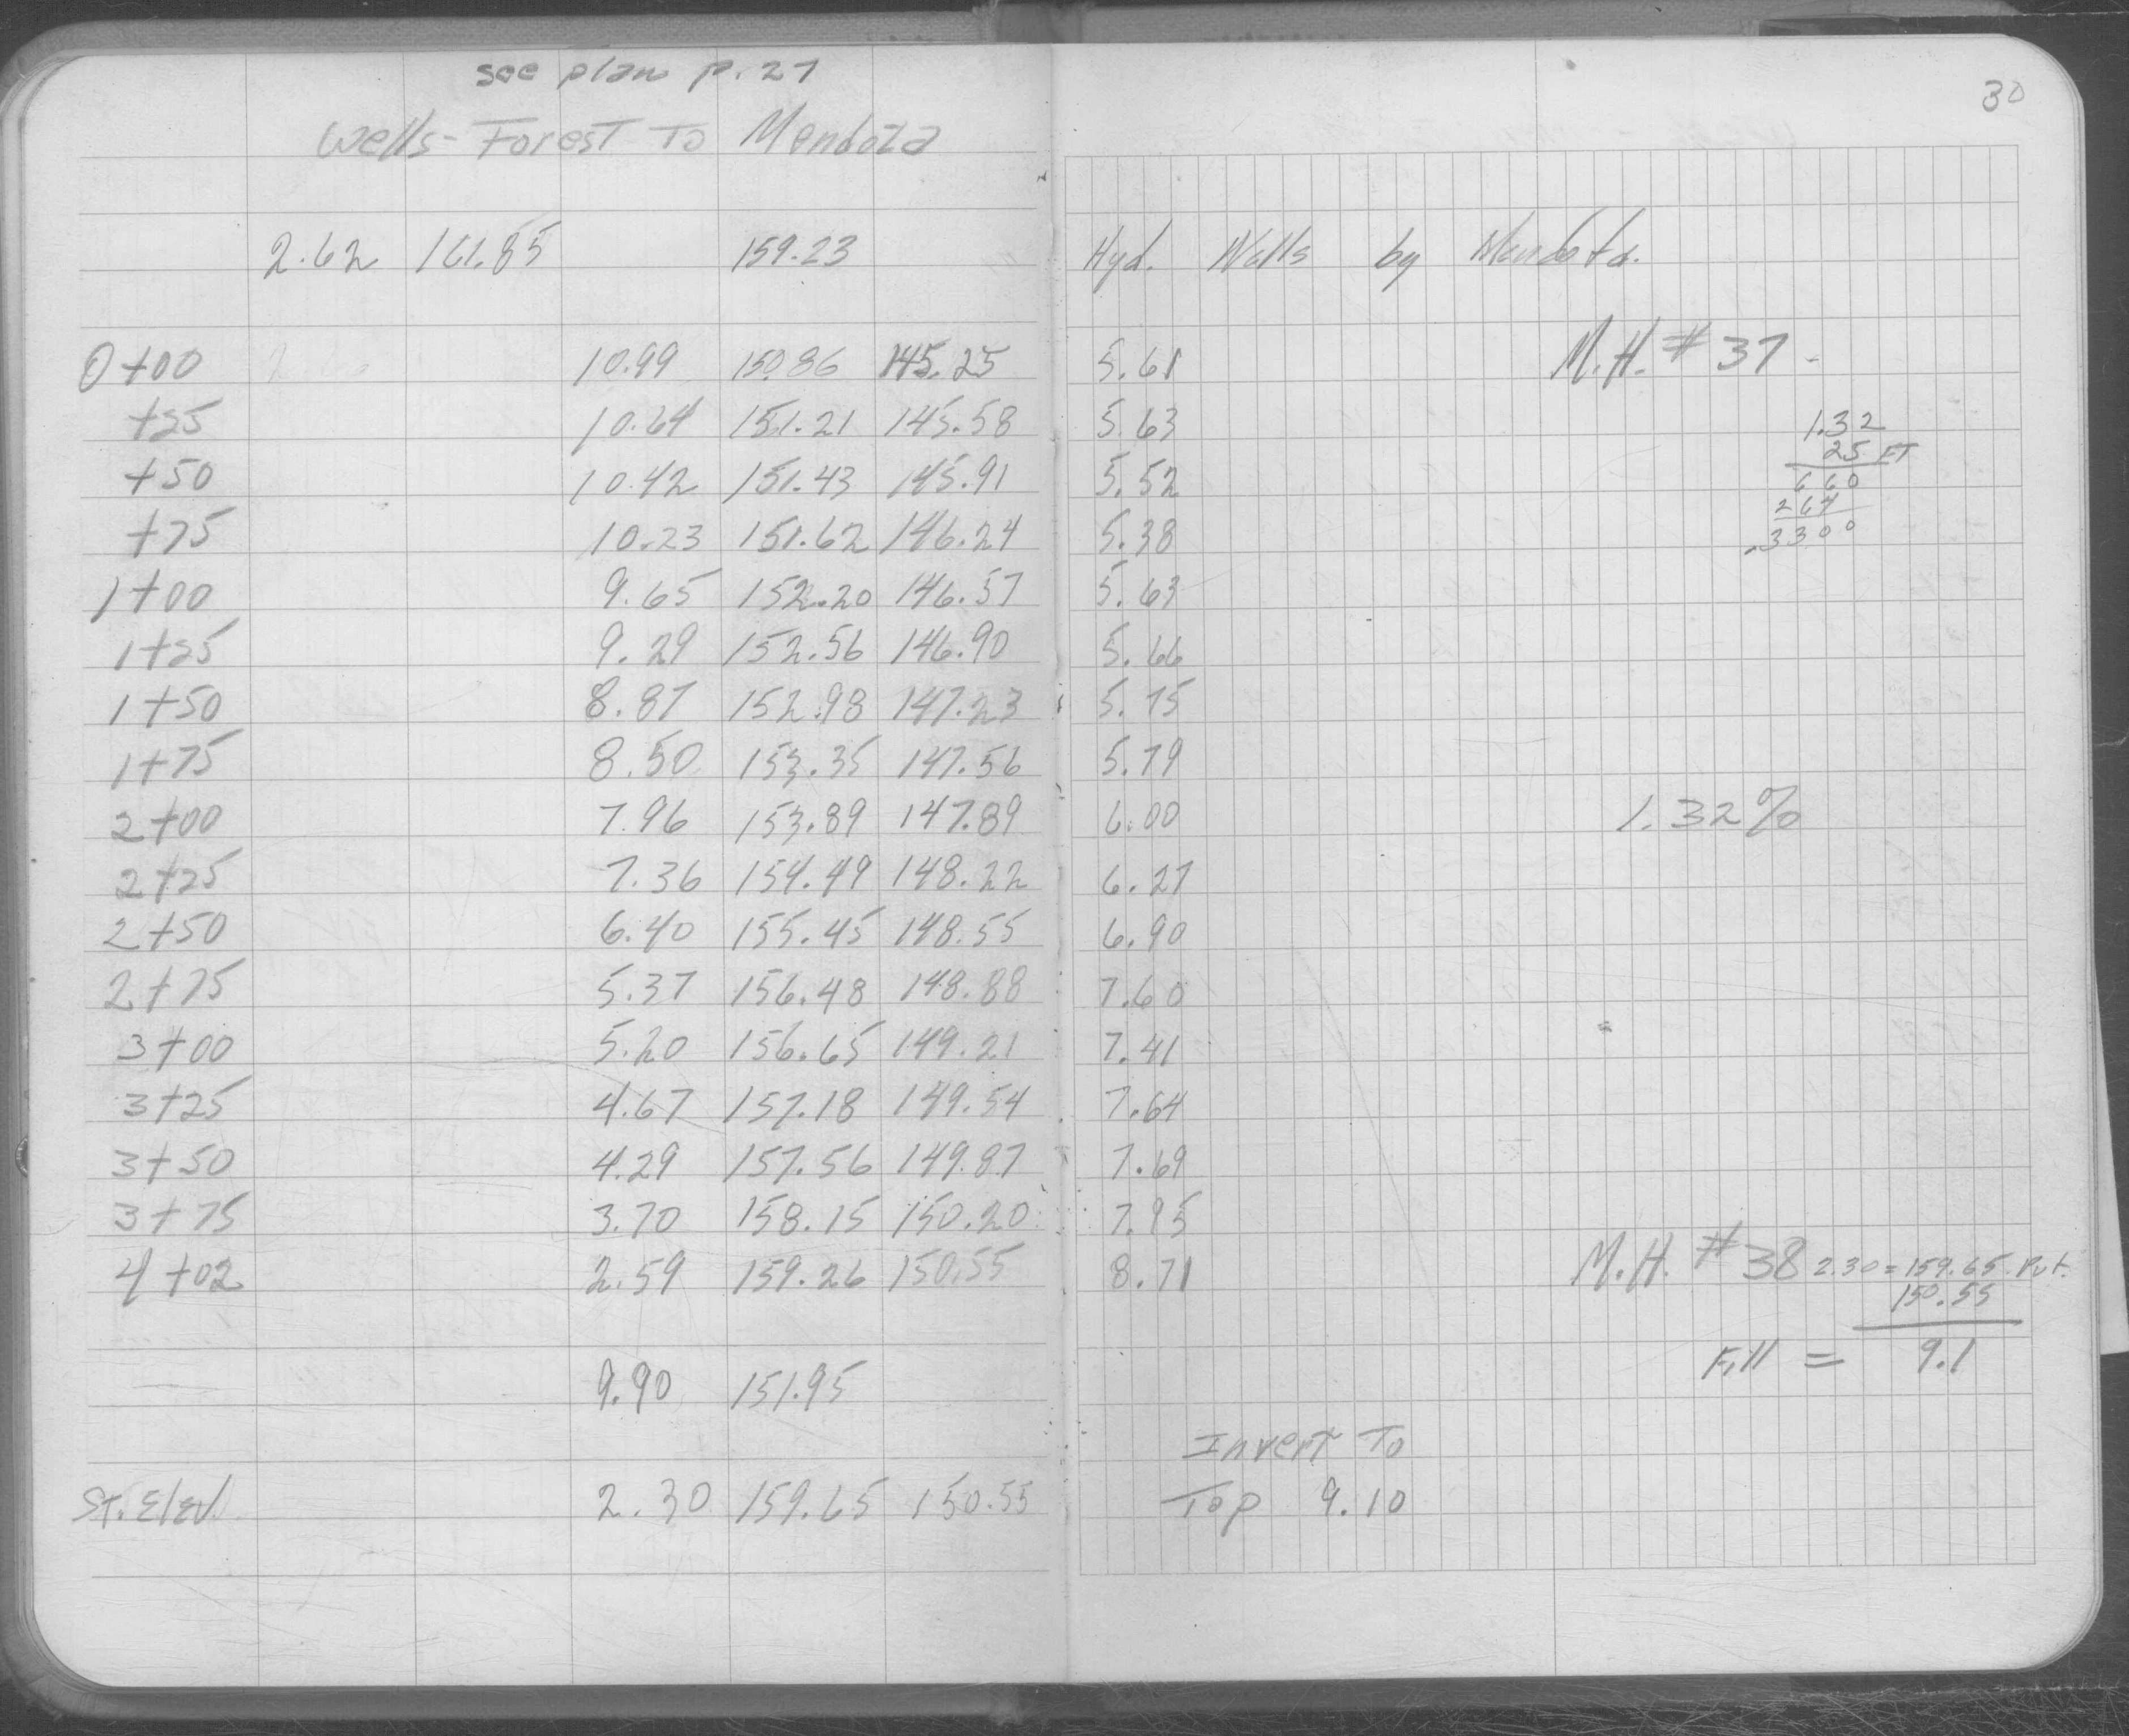 see plan p. 27
30
Wells - Forest To Mendota
2.62 161.85 159.23 Hyd. Wells by Mendota.
0+00 10.99 150.86 145.25 5.61 M.H. # 37 -
+25 10.64 151.21 145.58 5.63 1.32
25 FT
+50 10.42 151.43 145.91 5.52 660
264
+75 10.23 151.62 146.24 5.38 .3300
1+00 9.65 152.20 146.57 5.63
1+25 9.29 152.56 146.90 5.66
1+50 8.87 152.98 147.23 5.75
1+75 8.50 153.35 147.56 5.79
2+00 7.96 153.89 147.89 6.00 1.32%
2+25 7.36 154.49 148.22 6.27
2+50 6.40 155.45 148.55 6.90
2+75 5.37 156.48 148.88 7.60
3+00 5.20 156.65 149.21 7.41
3+25 4.67 157.18 149.54 7.64
3+50 4.29 157.56 149.87 7.69
3+75 3.70 158.15 150.20 7.95
4+02 2.59 159.26 150.55 8.71 M.H. # 38 2.30 = 159.65
150.55
Fill = 9.1
9.90 151.95
Invert To
St. Elev. 2.30 159.65 150.55 Top 9.10